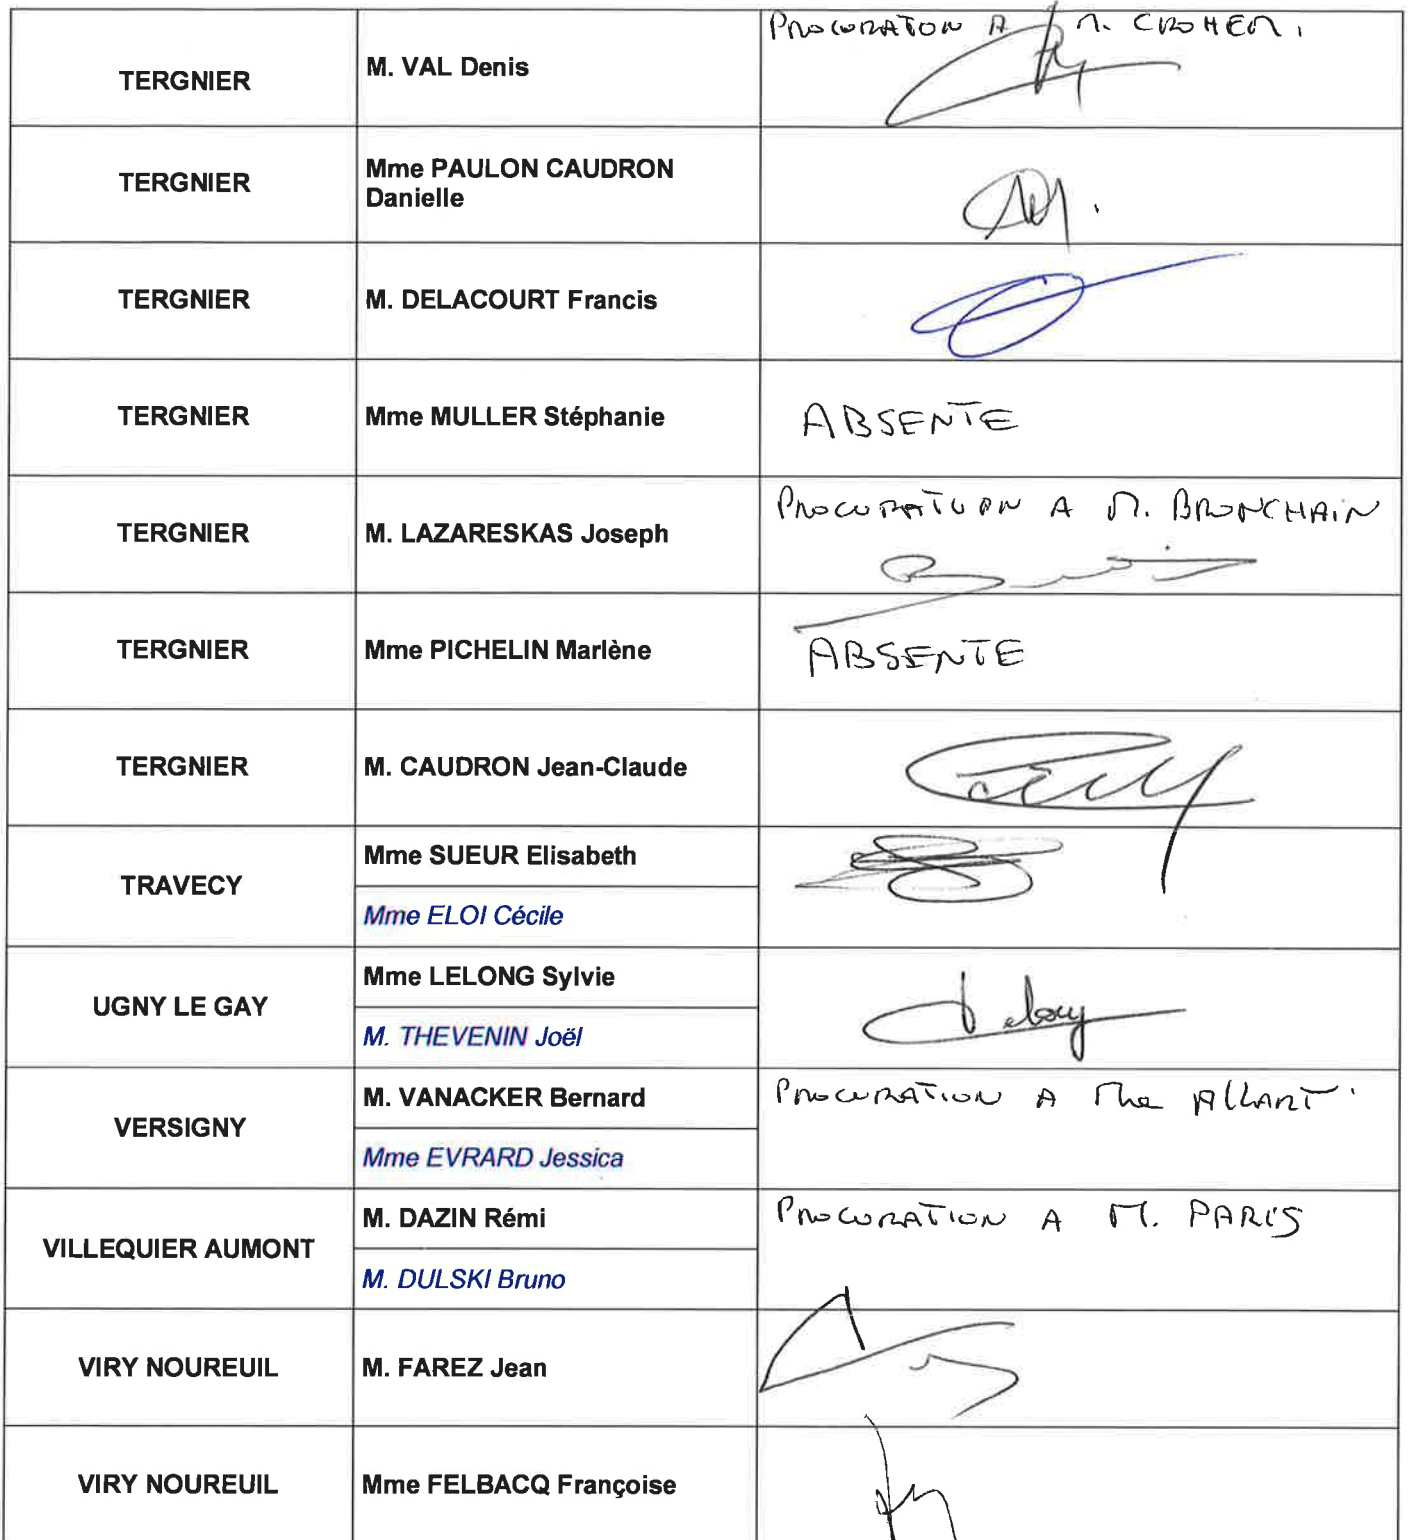 TERGNIER
M. VAL Denis
PROCURATON A M. CROHEM.
TERGNIER
Mme PAULON CAUDRON
Danielle
TERGNIER
M. DELACOURT Francis
TERGNIER
Mme MULLER Stéphanie
ABSENTE
TERGNIER
M. LAZARESKAS Joseph
PROCURATION A M. BRONCHAIN
TERGNIER
Mme PICHELIN Marlène
ABSENTE
TERGNIER
M. CAUDRON Jean-Claude
TRAVECY
Mme SUEUR Elisabeth
Mme ELOI Cécile
UGNY LE GAY
Mme LELONG Sylvie
M. THEVENIN Joël
VERSIGNY
M. VANACKER Bernard
PROCURATION A Mme AllART.
Mme EVRARD Jessica
VILLEQUIER AUMONT
M. DAZIN Rémi
PROCURATION A M. PARIS
M. DULSKI Bruno
VIRY NOUREUIL
M. FAREZ Jean
VIRY NOUREUIL
Mme FELBACQ Françoise